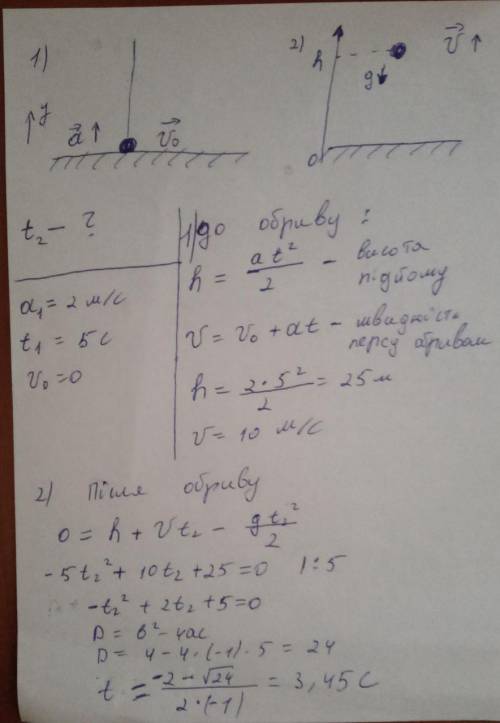 1)
↑y
a⃗ ↑
v⃗₀
2)
h
g↓
v⃗ ↑
0
t₂ - ?
a₁ = 2 м/с
t₁ = 5 с
v₀ = 0
1) до обриву :
h = at²/2 - висота підйому
v = v₀ + at - швидкість перед обривом
h = 2·5²/2 = 25 м
v = 10 м/с
2) Після обриву
0 = h + vt₂ - gt₂²/2
-5t₂² + 10t₂ + 25 = 0 | : 5
-t₂² + 2t₂ + 5 = 0
D = b² - 4ac
D = 4 - 4·(-1)·5 = 24
t = -2-√24/2·(-1) = 3,45 с